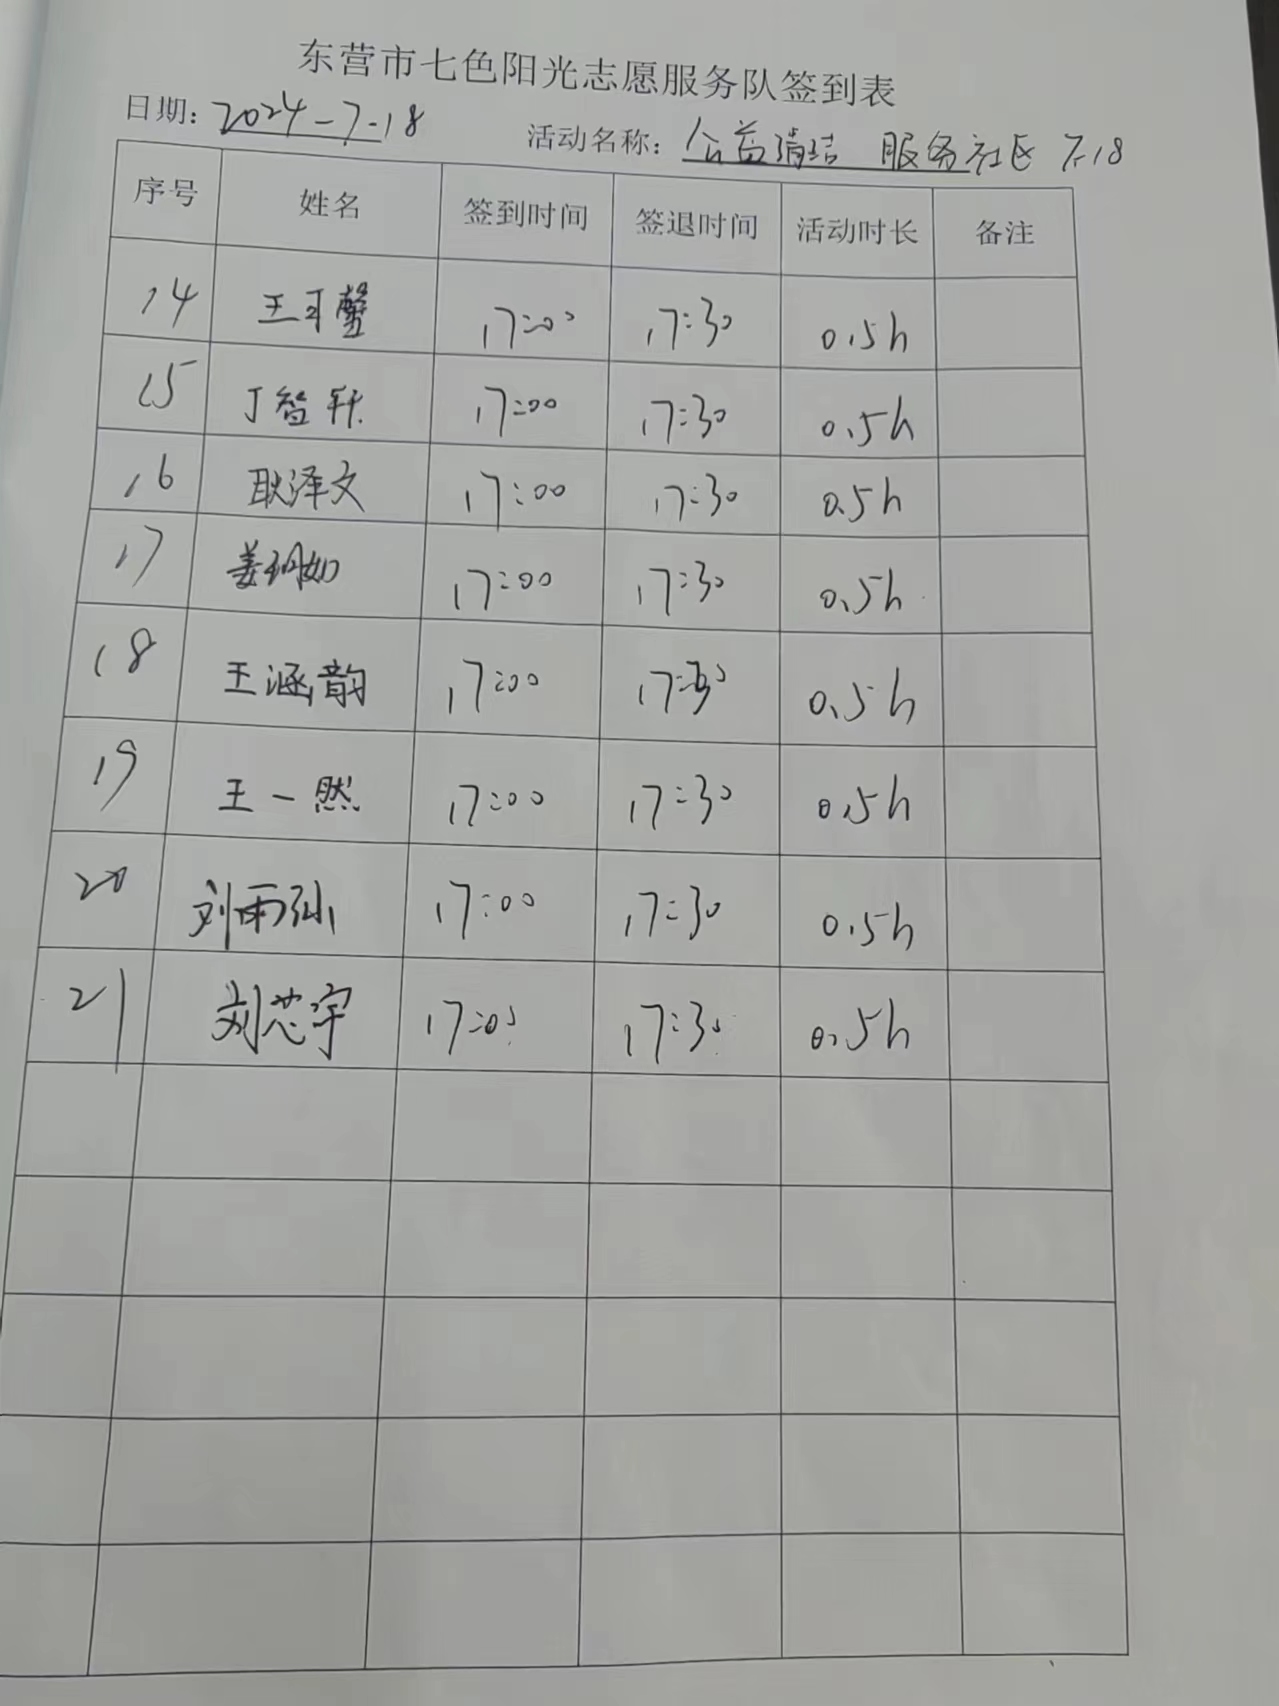 东营市七色阳光志愿服务队签到表
日期: 2024-7-18 活动名称: 公益清洁 服务社区 7.18
序号 姓名 签到时间 签退时间 活动时长 备注
14 王子馨 17:00 17:30 0.5h
15 丁智轩 17:00 17:30 0.5h
16 耿泽文 17:00 17:30 0.5h
17 姜如 17:00 17:30 0.5h
18 王涵韵 17:00 17:30 0.5h
19 王一然 17:00 17:30 0.5h
20 刘雨 17:00 17:30 0.5h
21 刘芯宇 17:00 17:30 0.5h